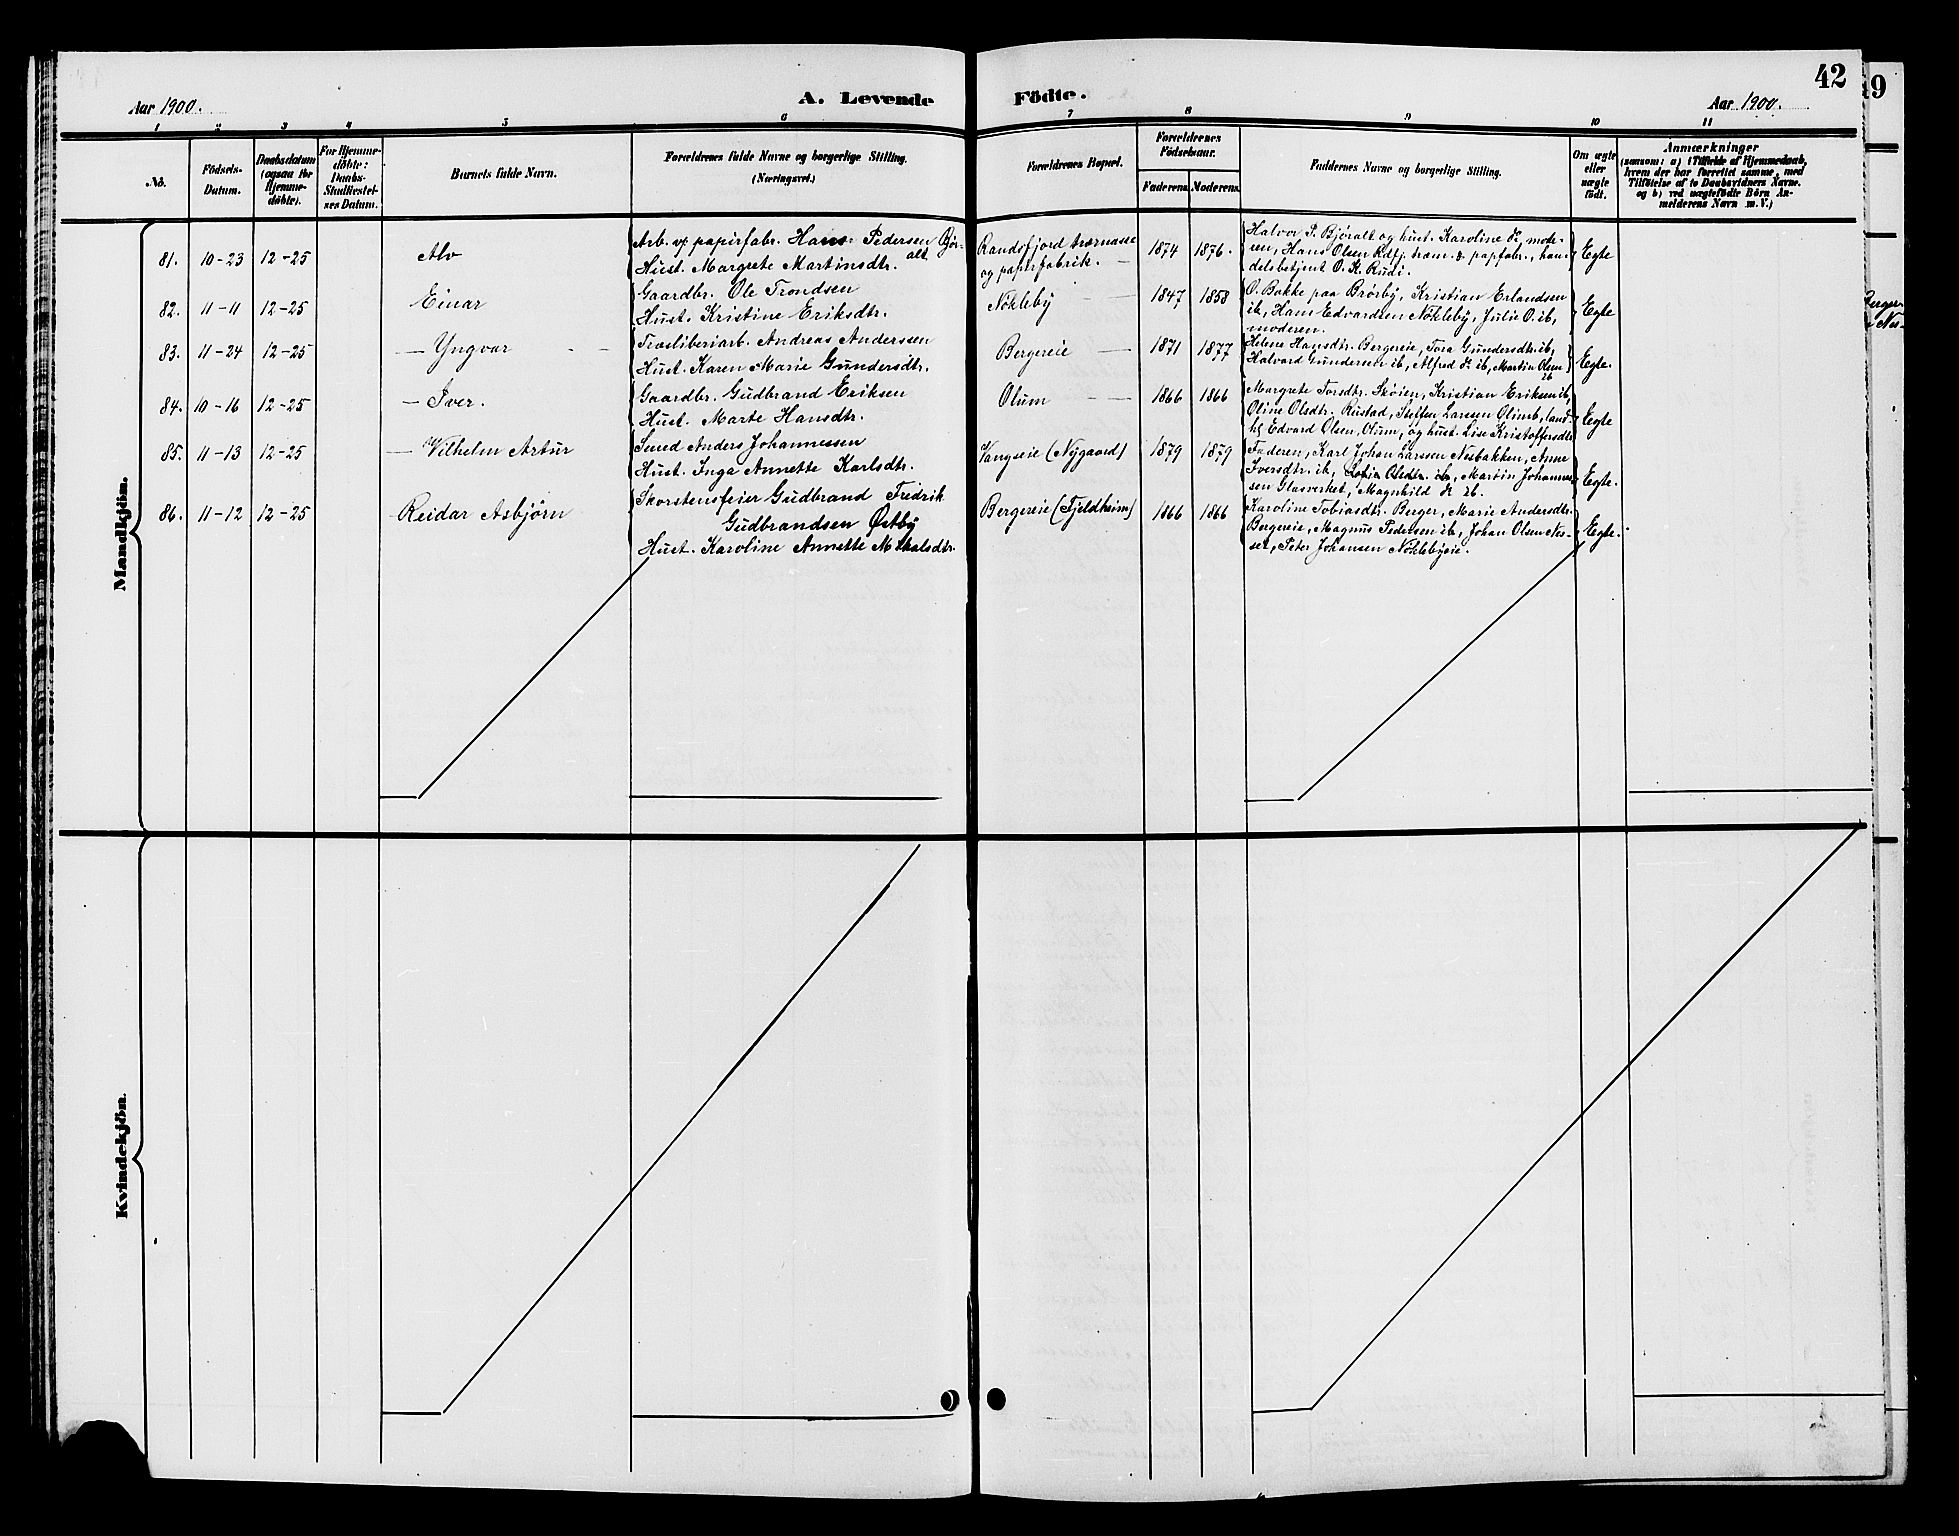 42
9
Aar 1900.
A. Levende
Födte.
Aar 1900.
1 2 3 4 5 6 7 8 9 10 11
No.
Födsels-
Datum.
Daabsdatum
(ogsaa for
Hjemme-
döbte).
For Hjemme-
döbte:
Daabs-
Stadfæstel-
ses Datum.
Barnets fulde Navn.
Forældrenes fulde Navne og borgerlige Stilling.
(Næringsvei.)
Forældrenes Bopæl.
Forældrenes
Födselsaar.
Faderens. Moderens.
Faddernes Navne og borgerlige Stilling.
Om ægte
eller
uægte
født.
Anmærkninger
(saasom: a) i Tilfælde af Hjemmedaab,
hvem der har forrettet samme, med
Tilföielse af to Daabsvidners Navne.
og b) ved uægtefödte Börn An-
melderens Navn m. V.)
Mandkjön.
81. 10-23 12-25 Alv
Arb. v/ papirfabr. Hans Pedersen Bjør-
alt
Hust. Margrete Martinsdtr.
Randsfjord træmasse
og papirfabrik.
1874 1876.
Halvor P. Björalt og hust. Karoline do, mode-
ren, Hans Olsen Rdfj. træm. & papfabr., han-
delsbetjent O. K. Rudi.
Egte
82. 11-11 12-25 Einar
Gaardbr. Ole Trondsen
Hust. Kristine Eriksdtr.
Nökleby
1847 1858
O. Bakke paa Brörby, Kristian Erlandsen
ib, Hans Edvardsen Nökleby, Julie O. ib,
moderen.
Egte
83. 11-24 12-25 Yngvar
Træsliberiarb. Andreas Anderssen
Hust. Karen Marie Gundersdtr.
Bergereie
1871 1877
Helene Hansdtr. Bergereie, Tora Gundersdtr. ib,
Halvard Gundersen ib, Alfred do ib, Martin Olsen
ib
Egte.
84. 10-16 12-25 Iver.
Gaardbr. Gudbrand Eriksen
Hust. Marte Hansdtr.
Olum
1866 1866
Margrete Torsdtr. Sköien, Kristian Eriksen ib,
Oline Olsdtr. Rustad, Steffen Larsen
Edvard Olsen Olum, og hust. Lise Kristoffersdtr
Egte
85. 11-13 12-25 Vilhelm Artur
Smed Anders Johannessen
Hust. Inga Annette Karlsdtr.
Vangseie (Nygaard)
1879 1879
Faderen, Karl Johan Larssen Nesbakken, Anne
Iversdtr. ib, Sofie Olsdtr. ib, Martin Johannes-
sen Glasverket, Magnhild do ib.
Egte.
86. 11-12 12-25 Reidar Asbjörn
Skorstensfeier Gudbrand Fredrik
Gudbrandsen Østby
Hust. Karoline Annette Mikalsdtr.
Bergereie (Fjeldheim)
1866 1866
Karoline Tobiasdtr. Berger, Marie Andersdtr.
Bergereie, Magnus Pedersen ib, Johan Olsen Nes-
set, Peter Johansen Nöklebyeie.
Egte.
Kvindekjön.